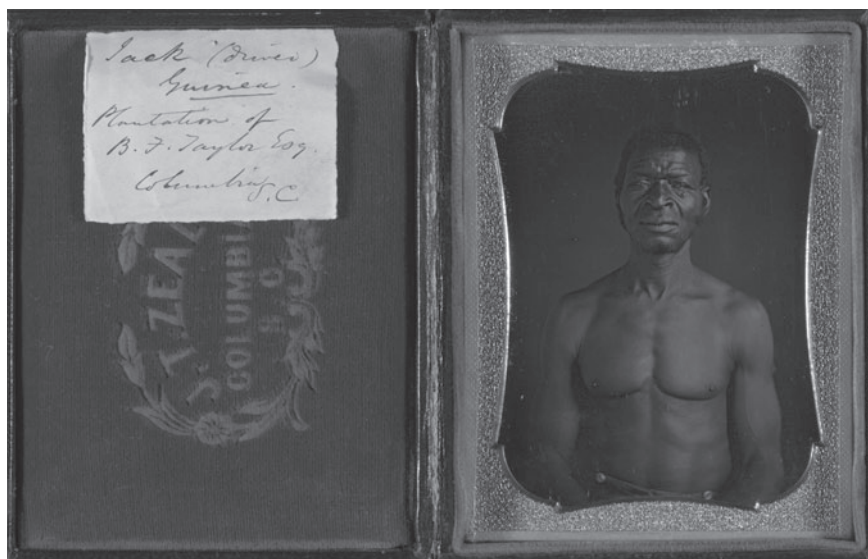 Jack (driver)
Guinea.
Plantation of
B. F. Taylor Esq.
Columbia, S.C
J.T. ZEAL
COLUMBIA
S C